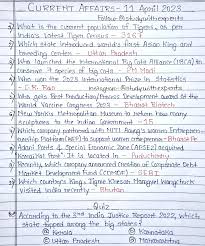 CURRENT AFFAIRS - 11 April 2023
Follow @studywithexperts
What is the current population of Tigers, as per
India's latest Tiger Census - 3167
Which state introduced world's first Asian King
Breeding Centre - Uttar Pradesh
Who launched the International Big Cats Alliance (IBCA) to
conserve 7 species of big cats - PM Modi
Who won the 2023 International Prize in Statistics
- C.R. Rao
Instagram: @studywithexperts
Who gets Best Production/Process Development award at the
World Vaccine Congress 2023 - Bharat Biotech
New York's Metropolitan Museum to return how many
sculptures to the Indian Govt - 15
Which company partnered with NITI Aayog's Women Entrepreneurship
Platform (WEP) to support women entrepreneur - BharatPe
Adani Ports & Special Economic Zone (APSEZ) acquired
Karaikal Port. It is located in - Puducherry
Recently, which company announced creation of Corporate Debt
Market Development Fund (CDMDF) - SEBI
Which country's King Jigme Khesar Namgyel Wangchuck
visited India recently - Bhutan
Quiz
According to the 3rd India Justice Report 2022, which
state topped among the following?
Kerala
Karnataka
Uttar Pradesh
Maharashtra